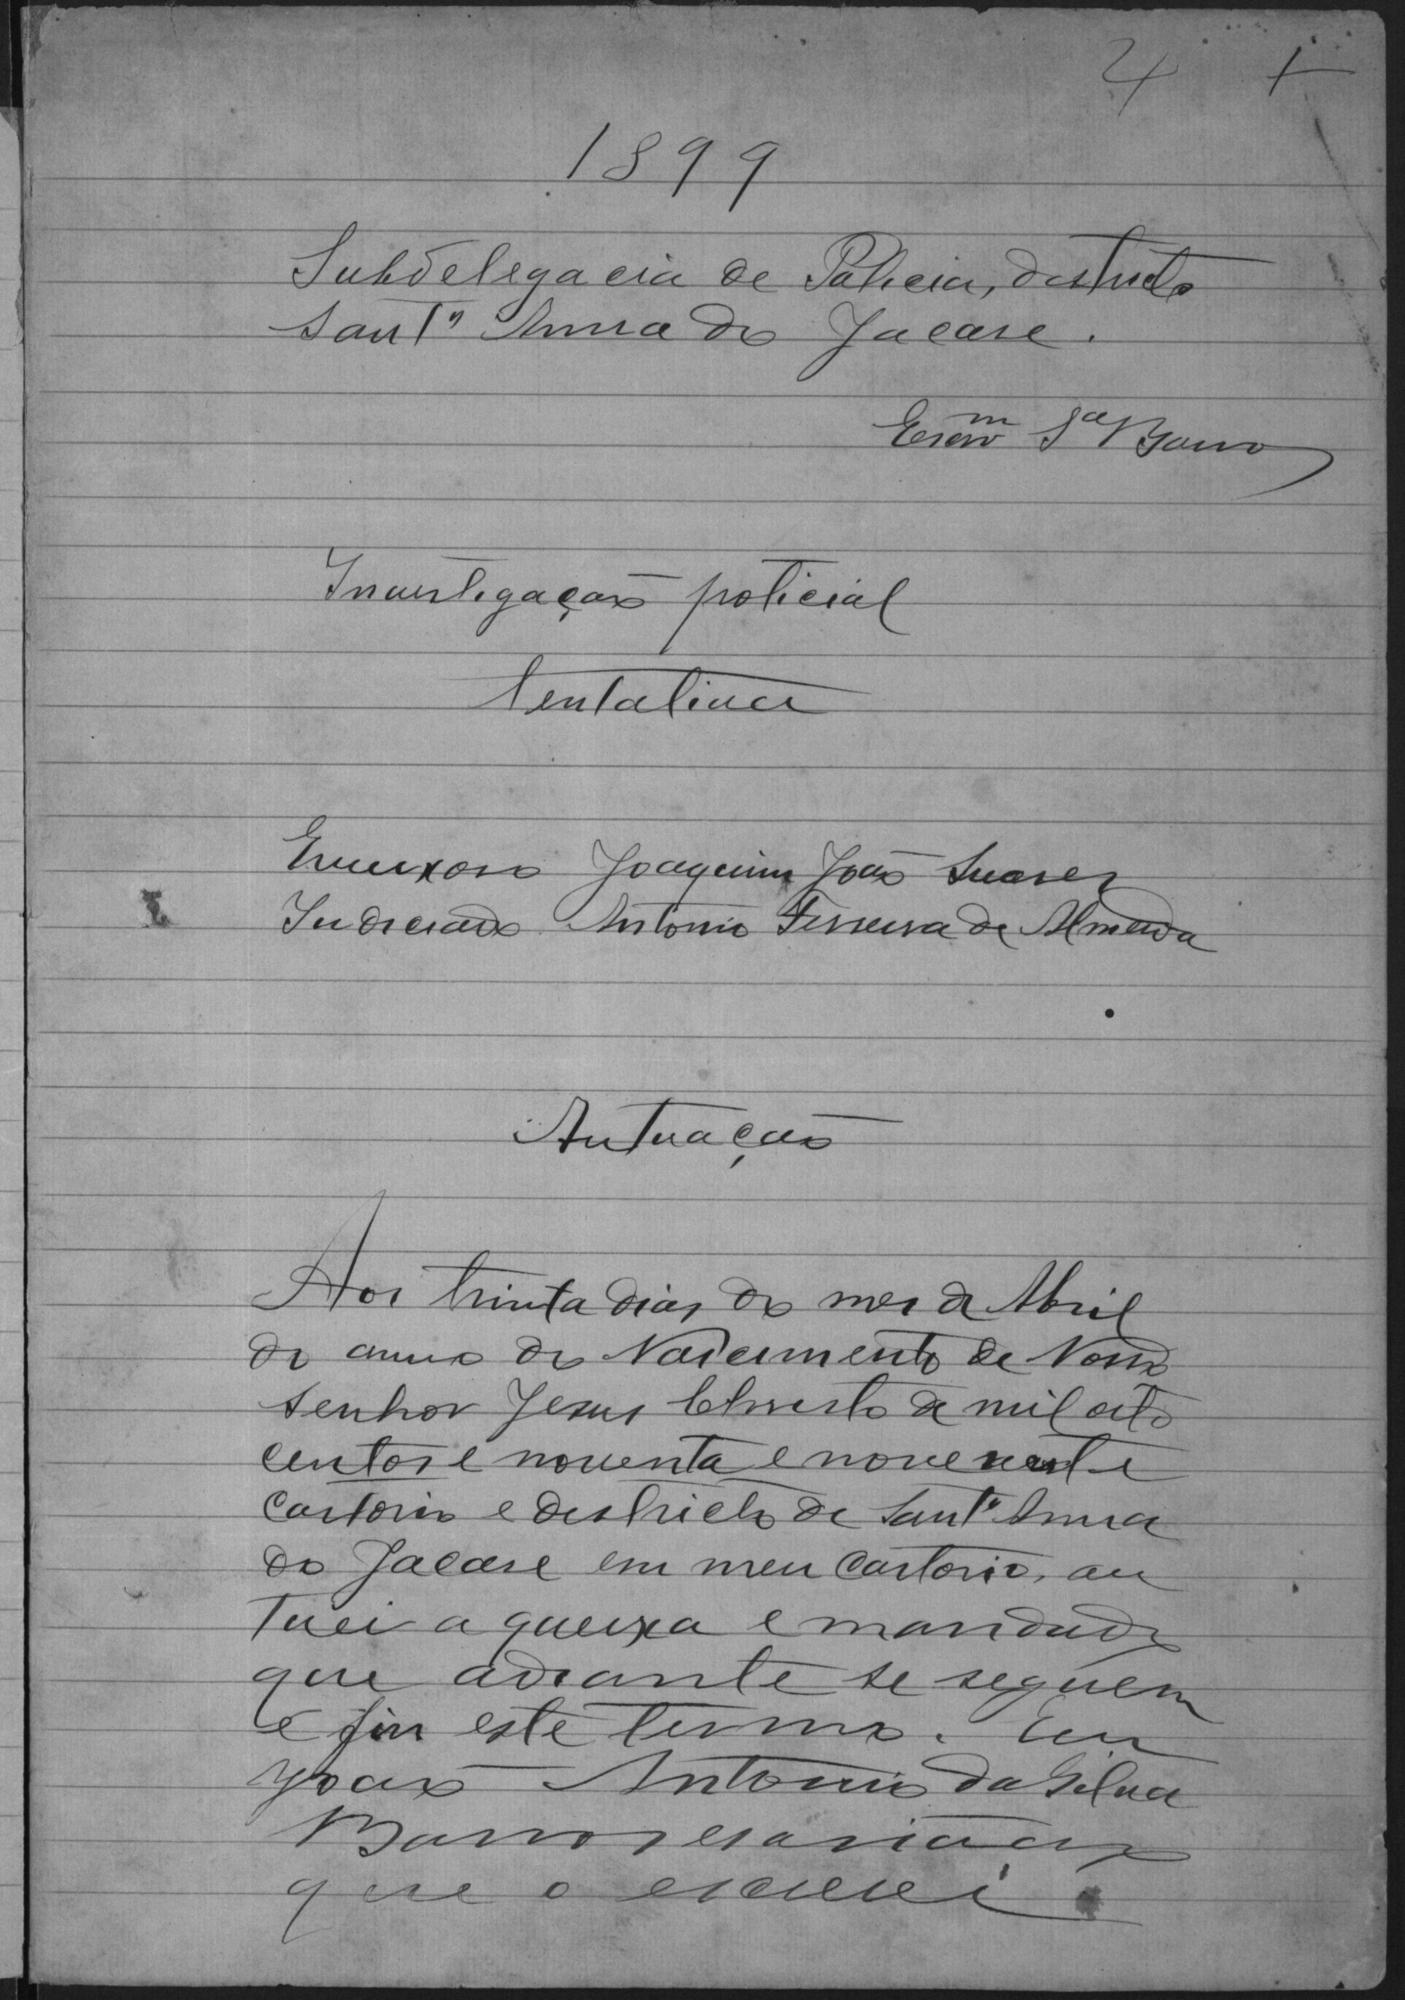 4 +
1899
Subdelegacia de Policia, districto
Sant'Anna do Jacare.
Escrm Sa Barros
Investigação policial
tentativa
Joaquim João Suares
Indiciado Antonio Ferreira de Almeida
Autuação
Aos trinta dias do mes de Abril
do anno do Nascimento de Nosso
Senhor Jesus Christo de mil oito
centos e noventa e nove neste
Cartorio e destricto de Sant'Anna
do Jacare em meu Cartorio, au
tuei a queixa e mandado
que adiante se seguem
e fiz este termo. Eu
João Antonio da Silva
Barros escrivão
que o escrevi